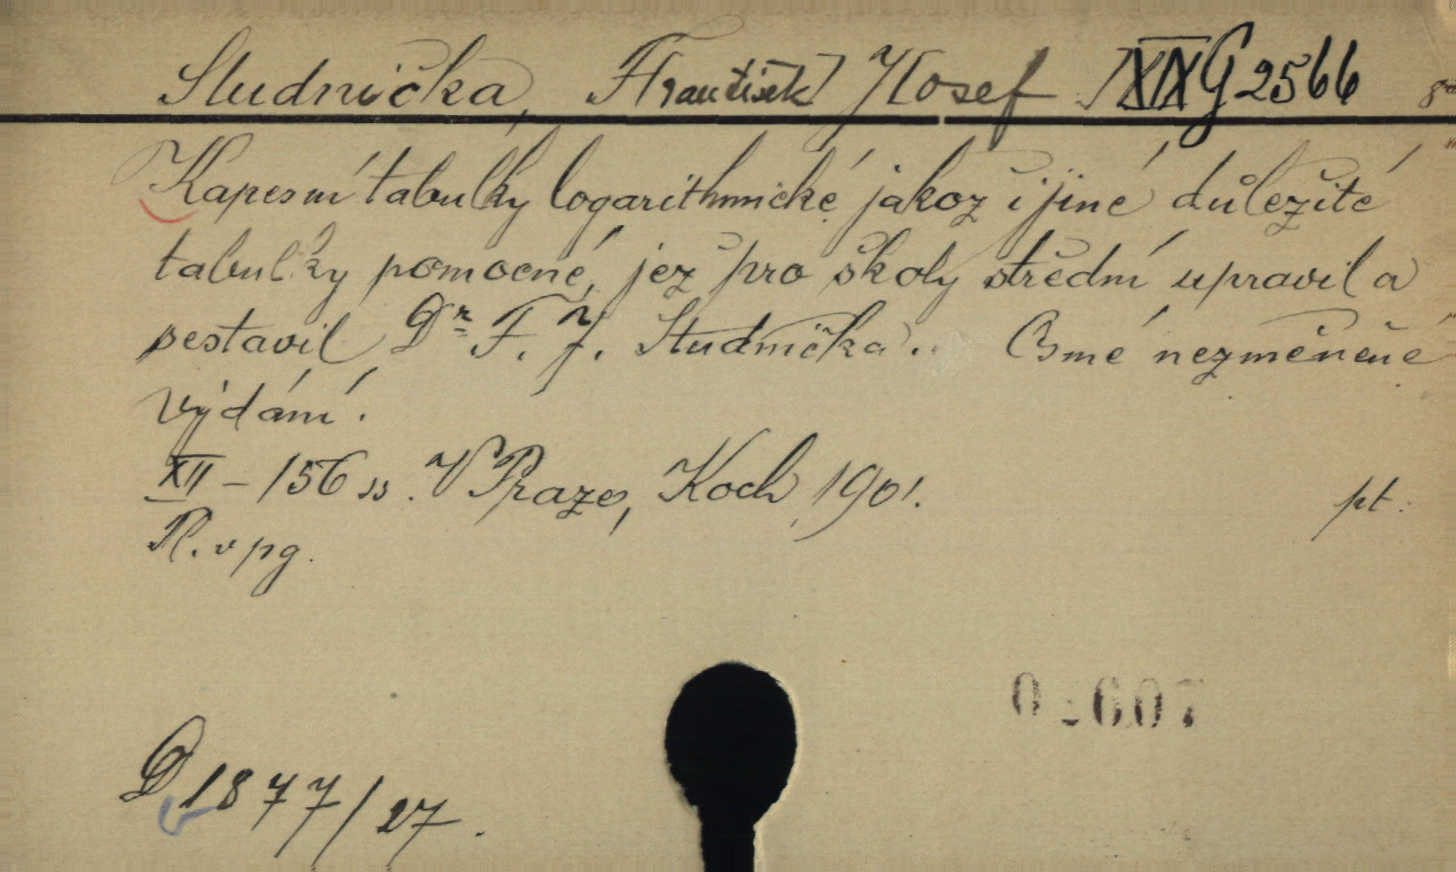 Studnička, F[rantišek] J[osef] XIX G 2566
Kapesní tabulky logarithmické jakož i jiné důležité
tabulky pomocné, jež pro školy střední upravil a
sestavil Dr F. J. Studnička. Osmé nezměněné
vydání.
XII - 156 ss. V Praze, Koch, 1901. pt.
R. v pg.
607
D 1877/27.